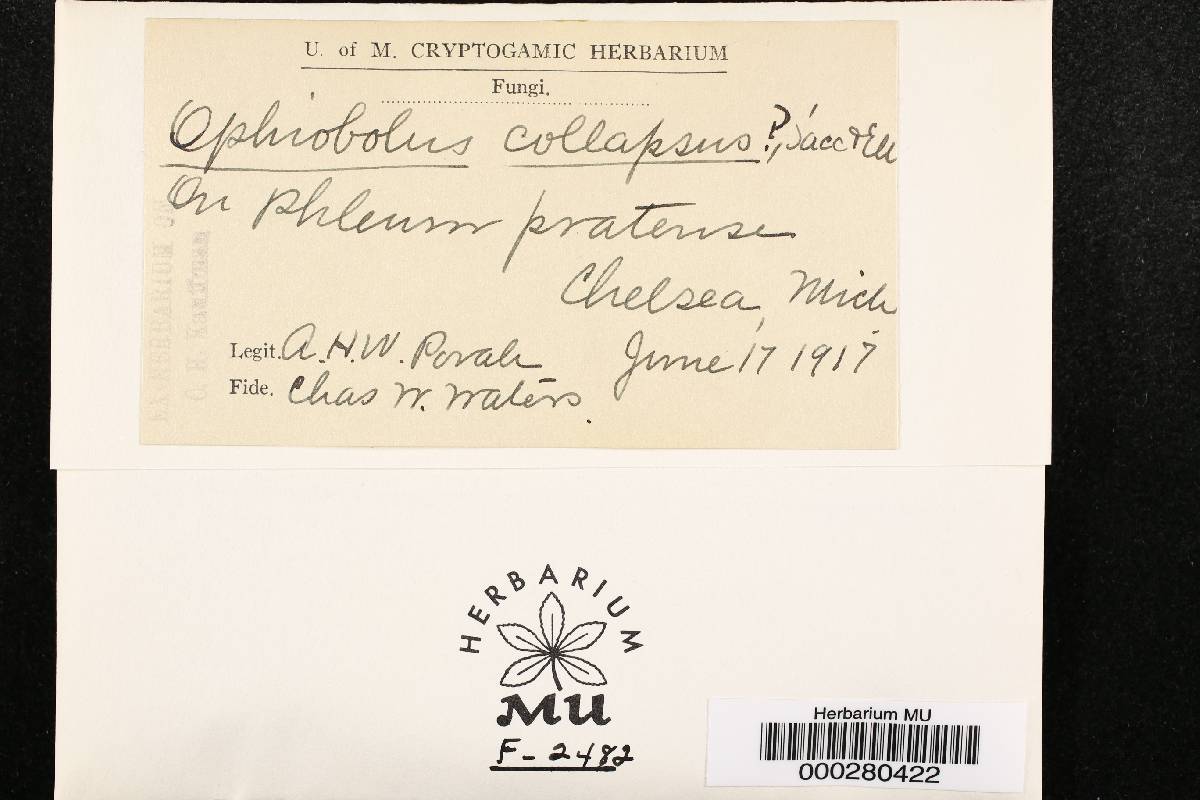 U. of M. CRYPTOGAMIC HERBARIUM
Fungi.
Ophiobolus collapsus?, Sacc & Ell
On Phleum pratense
Chelsea, Mich.
Legit. A.H.W. Povah June 17 1917
Fide. Chas W. Waters.
EX HERBARIUM OF
HERBARIUM
MU
F-2482
Herbarium MU
000280422